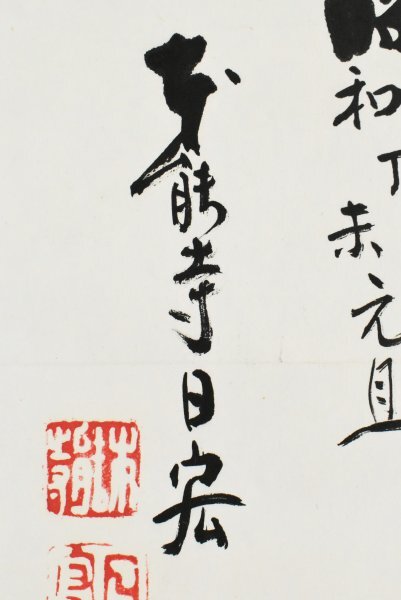 昭和丁未元旦
本能寺日宏